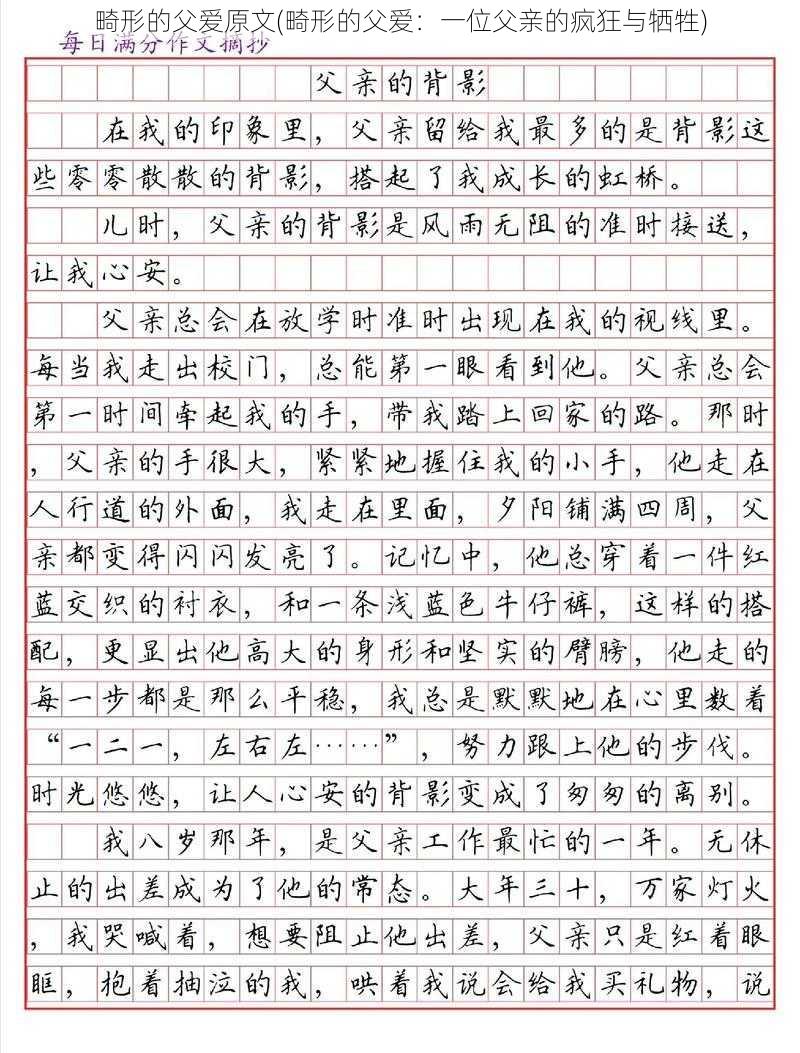 畸形的父爱原文(畸形的父爱：一位父亲的疯狂与牺牲)
每日满分作文摘抄
父亲的背影
在我的印象里，父亲留给我最多的是背影这
些零零散散的背影，搭起了我成长的虹桥。
儿时，父亲的背影是风雨无阻的准时接送，
让我心安。
父亲总会在放学时准时出现在我的视线里。
每当我走出校门，总能第一眼看到他。父亲总会
第一时间牵起我的手，带我踏上回家的路。那时
，父亲的手很大，紧紧地握住我的小手，他走在
人行道的外面，我走在里面，夕阳铺满四周，父
亲都变得闪闪发亮了。记忆中，他总穿着一件红
蓝交织的衬衣，和一条浅蓝色牛仔裤，这样的搭
配，更显出他高大的身形和坚实的臂膀，他走的
每一步都是那么平稳，我总是默默地在心里数着
“一二一，左右左……”，努力跟上他的步伐。
时光悠悠，让人心安的背影变成了匆匆的离别。
我八岁那年，是父亲工作最忙的一年。无休
止的出差成为了他的常态。大年三十，万家灯火
，我哭喊着，想要阻止他出差，父亲只是红着眼
眶，抱着抽泣的我，哄着我说会给我买礼物，说